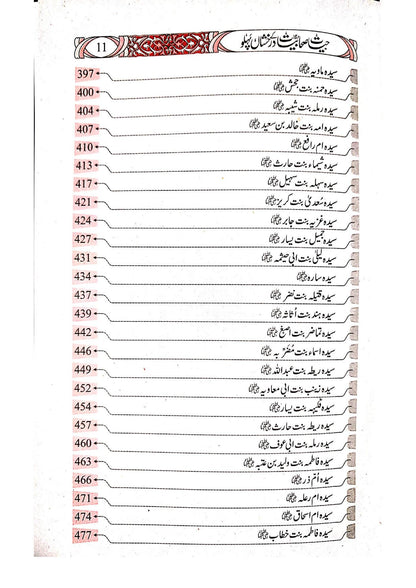 حیات صحابیات کے درخشاں پہلو 11
سیدہ ماویہ رضی اللہ عنہا 397
سیدہ حمنہ بنت جحش رضی اللہ عنہا 400
سیدہ رملہ بنت شیبہ رضی اللہ عنہا 404
سیدہ امہ بنت خالد بن سعید رضی اللہ عنہا 407
سیدہ ام رافع رضی اللہ عنہا 410
سیدہ شیماء بنت حارث رضی اللہ عنہا 413
سیدہ سہلہ بنت سہیل رضی اللہ عنہا 417
سیدہ سُعدیٰ بنت کریز رضی اللہ عنہا 421
سیدہ غزیہ بنت جابر رضی اللہ عنہا 424
سیدہ جمیل بنت یسار رضی اللہ عنہا 427
سیدہ لیلیٰ بنت ابی حثمہ رضی اللہ عنہا 431
سیدہ سارہ رضی اللہ عنہا 434
سیدہ قتیلہ بنت نضر رضی اللہ عنہا 437
سیدہ ہند بنت اُثاثہ رضی اللہ عنہا 439
سیدہ تماضر بنت اصبغ رضی اللہ عنہا 442
سیدہ اسماء بنت مُخَرِّبہ رضی اللہ عنہا 446
سیدہ ریطہ بنت عبداللہ رضی اللہ عنہا 449
سیدہ زینب بنت ابی معاویہ رضی اللہ عنہا 452
سیدہ فکیہہ بنت یسار رضی اللہ عنہا 454
سیدہ ریطہ بنت حارث رضی اللہ عنہا 457
سیدہ رملہ بنت ابی عوف رضی اللہ عنہا 460
سیدہ فاطمہ بنت ولید بن عتبہ رضی اللہ عنہا 463
سیدہ اُمّ ذر رضی اللہ عنہا 466
سیدہ ام رعلہ رضی اللہ عنہا 471
سیدہ ام اسحاق رضی اللہ عنہا 474
سیدہ فاطمہ بنت خطاب رضی اللہ عنہا 477